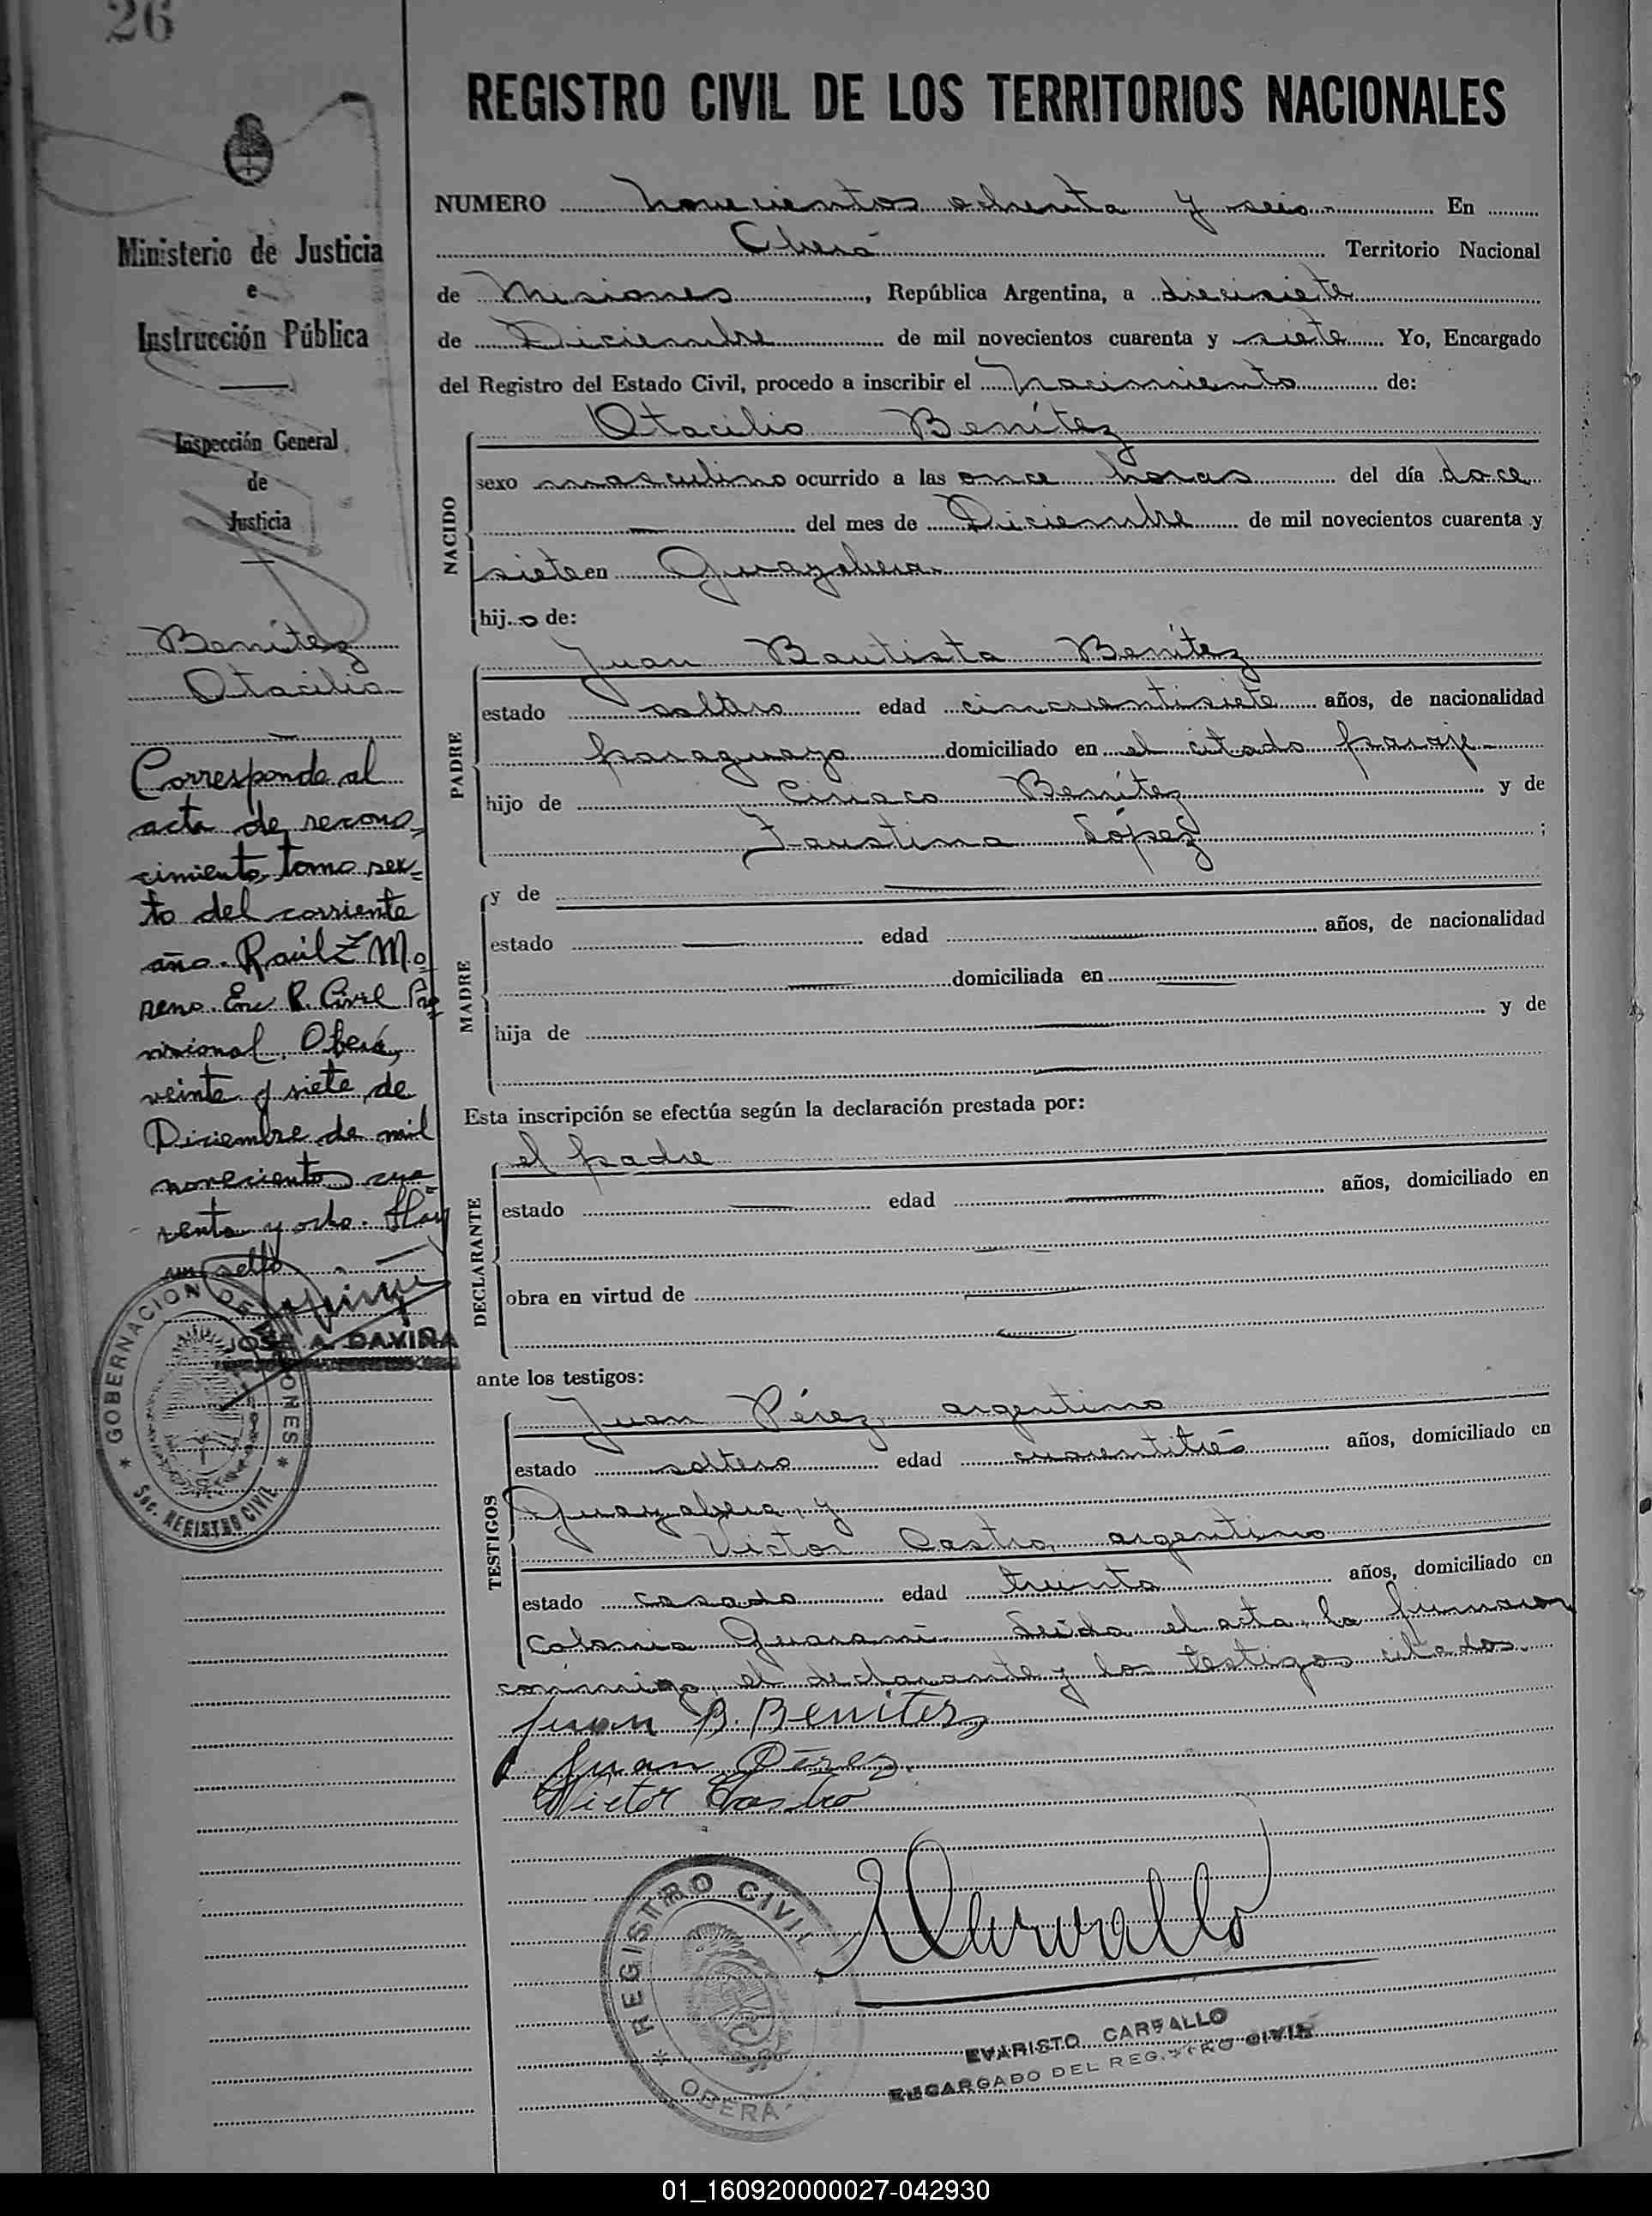 26
REGISTRO CIVIL DE LOS TERRITORIOS NACIONALES
Ministerio de Justicia
e
Instrucción Pública
Inspección General
de
Justicia
Benítez
Otacilio
Corresponde al
acta de recono-
cimiento, tomo sex-
to del corriente
año. Raúl Z Mo
reno. Enc R. Civil Pro
visional. Oberá,
veinte y siete de
Diciembre de mil
novecientos cua-
renta y ocho. Hay
un sello
GOBERNACION DE MISIONES
JOSE A. DAVIÑA
* Sec. REGISTRO CIVIL *
NUMERO novecientos ochenta y seis.- En
Oberá Territorio Nacional
de Misiones, República Argentina, a diecisiete
de Diciembre de mil novecientos cuarenta y siete Yo, Encargado
del Registro del Estado Civil, procedo a inscribir el nacimiento de:
NACIDO
Otacilio Benítez
sexo masculino ocurrido a las once horas del día doce
del mes de Diciembre de mil novecientos cuarenta y
siete en Guayabera.
hijo de:
PADRE
Juan Bautista Benítez
estado soltero edad cincuentisiete años, de nacionalidad
paraguayo domiciliado en el citado paraje
hijo de Ciriaco Benítez y de
Faustina López ;
MADRE
y de
estado edad años, de nacionalidad
domiciliada en
hija de y de
Esta inscripción se efectúa según la declaración prestada por:
DECLARANTE
el padre
estado edad años, domiciliado en
obra en virtud de
ante los testigos:
TESTIGOS
Juan Pérez, argentino
estado soltero edad cuarentitrés años, domiciliado en
Guayabera, y
Victor Castro, argentino
estado casado edad treinta años, domiciliado en
Colonia Guaraní. Leída el acta, la firmaron
conmigo, el declarante y los testigos citados.
Juan B. Benitez
Juan Pérez
Victor Castro
* REGISTRO CIVIL *
OBERA
ECarvallo
EVARISTO CARVALLO
ENCARGADO DEL REGISTRO CIVIL
01_160920000027-042930